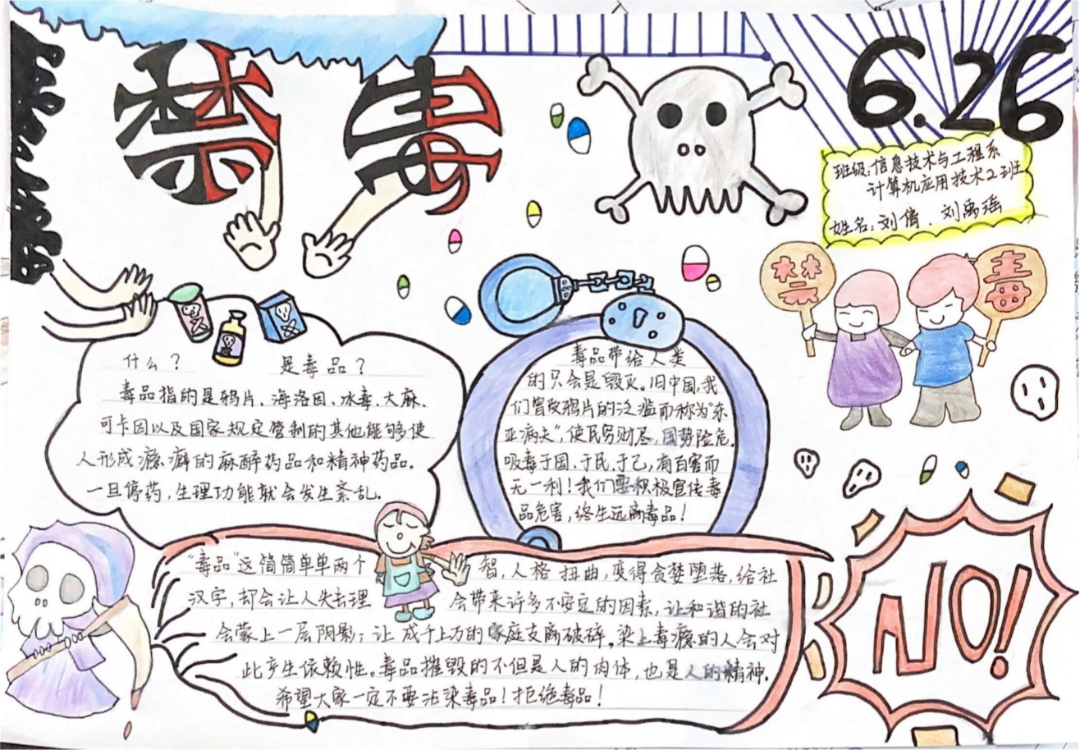 禁毒
6.26
班级:信息技术与工程系
计算机应用技术2班
姓名:刘倩.刘禹瑶
禁
毒
什么? 是毒品?
毒品指的是鸦片、海洛因、冰毒、大麻、
可卡因以及国家规定管制的其他能够使
人形成瘾癖的麻醉药品和精神药品.
一旦停药,生理功能就会发生紊乱.
毒品带给人类
的只会是毁灭。旧中国,我
们曾改鸦片的泛滥而称为"东
亚病夫",使民穷财尽,国势险危.
吸毒于国、于民、于己,有百害而
无一利!我们要积极宣传毒
品危害,终生远离毒品!
"毒品"这简简单单两个
汉字,却会让人失去理
智,人格扭曲,变得贪婪堕落,给社
会带来许多不安定的因素,让和谐的社
会蒙上一层阴影;让成千上万的家庭支离破碎。染上毒瘾的人会对
此产生依赖性。毒品摧毁的不但是人的肉体,也是人的精神.
希望大家一定不要沾染毒品!拒绝毒品!
NO!